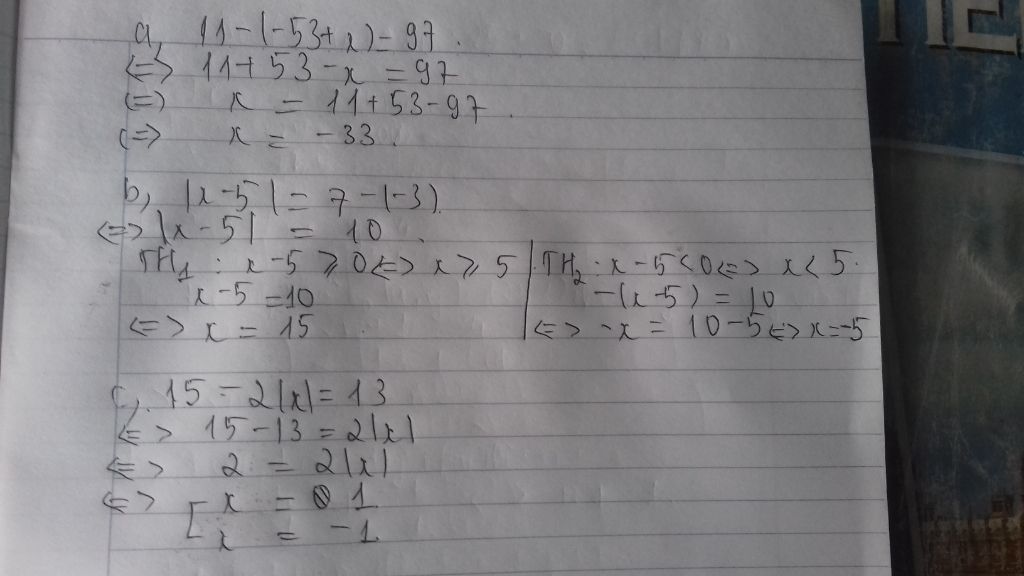 a, 11-(-53+x)=97.
<=> 11+53-x=97
(=) x = 11+53-97.
(=> x = -33.
b, |x-5|= 7-(-3).
<=> |x-5| = 10.
TH1 : x-5 ⩾ 0 <=> x ⩾ 5
x-5=10
<=> x = 15
TH2 : x-5<0 <=> x<5.
-(x-5) = 10
<=> -x = 10-5 <=> x=-5
c, 15-2|x|=13
<=> 15-13=2|x|
<=> 2 = 2|x|
<=> [x = 1
x = -1.